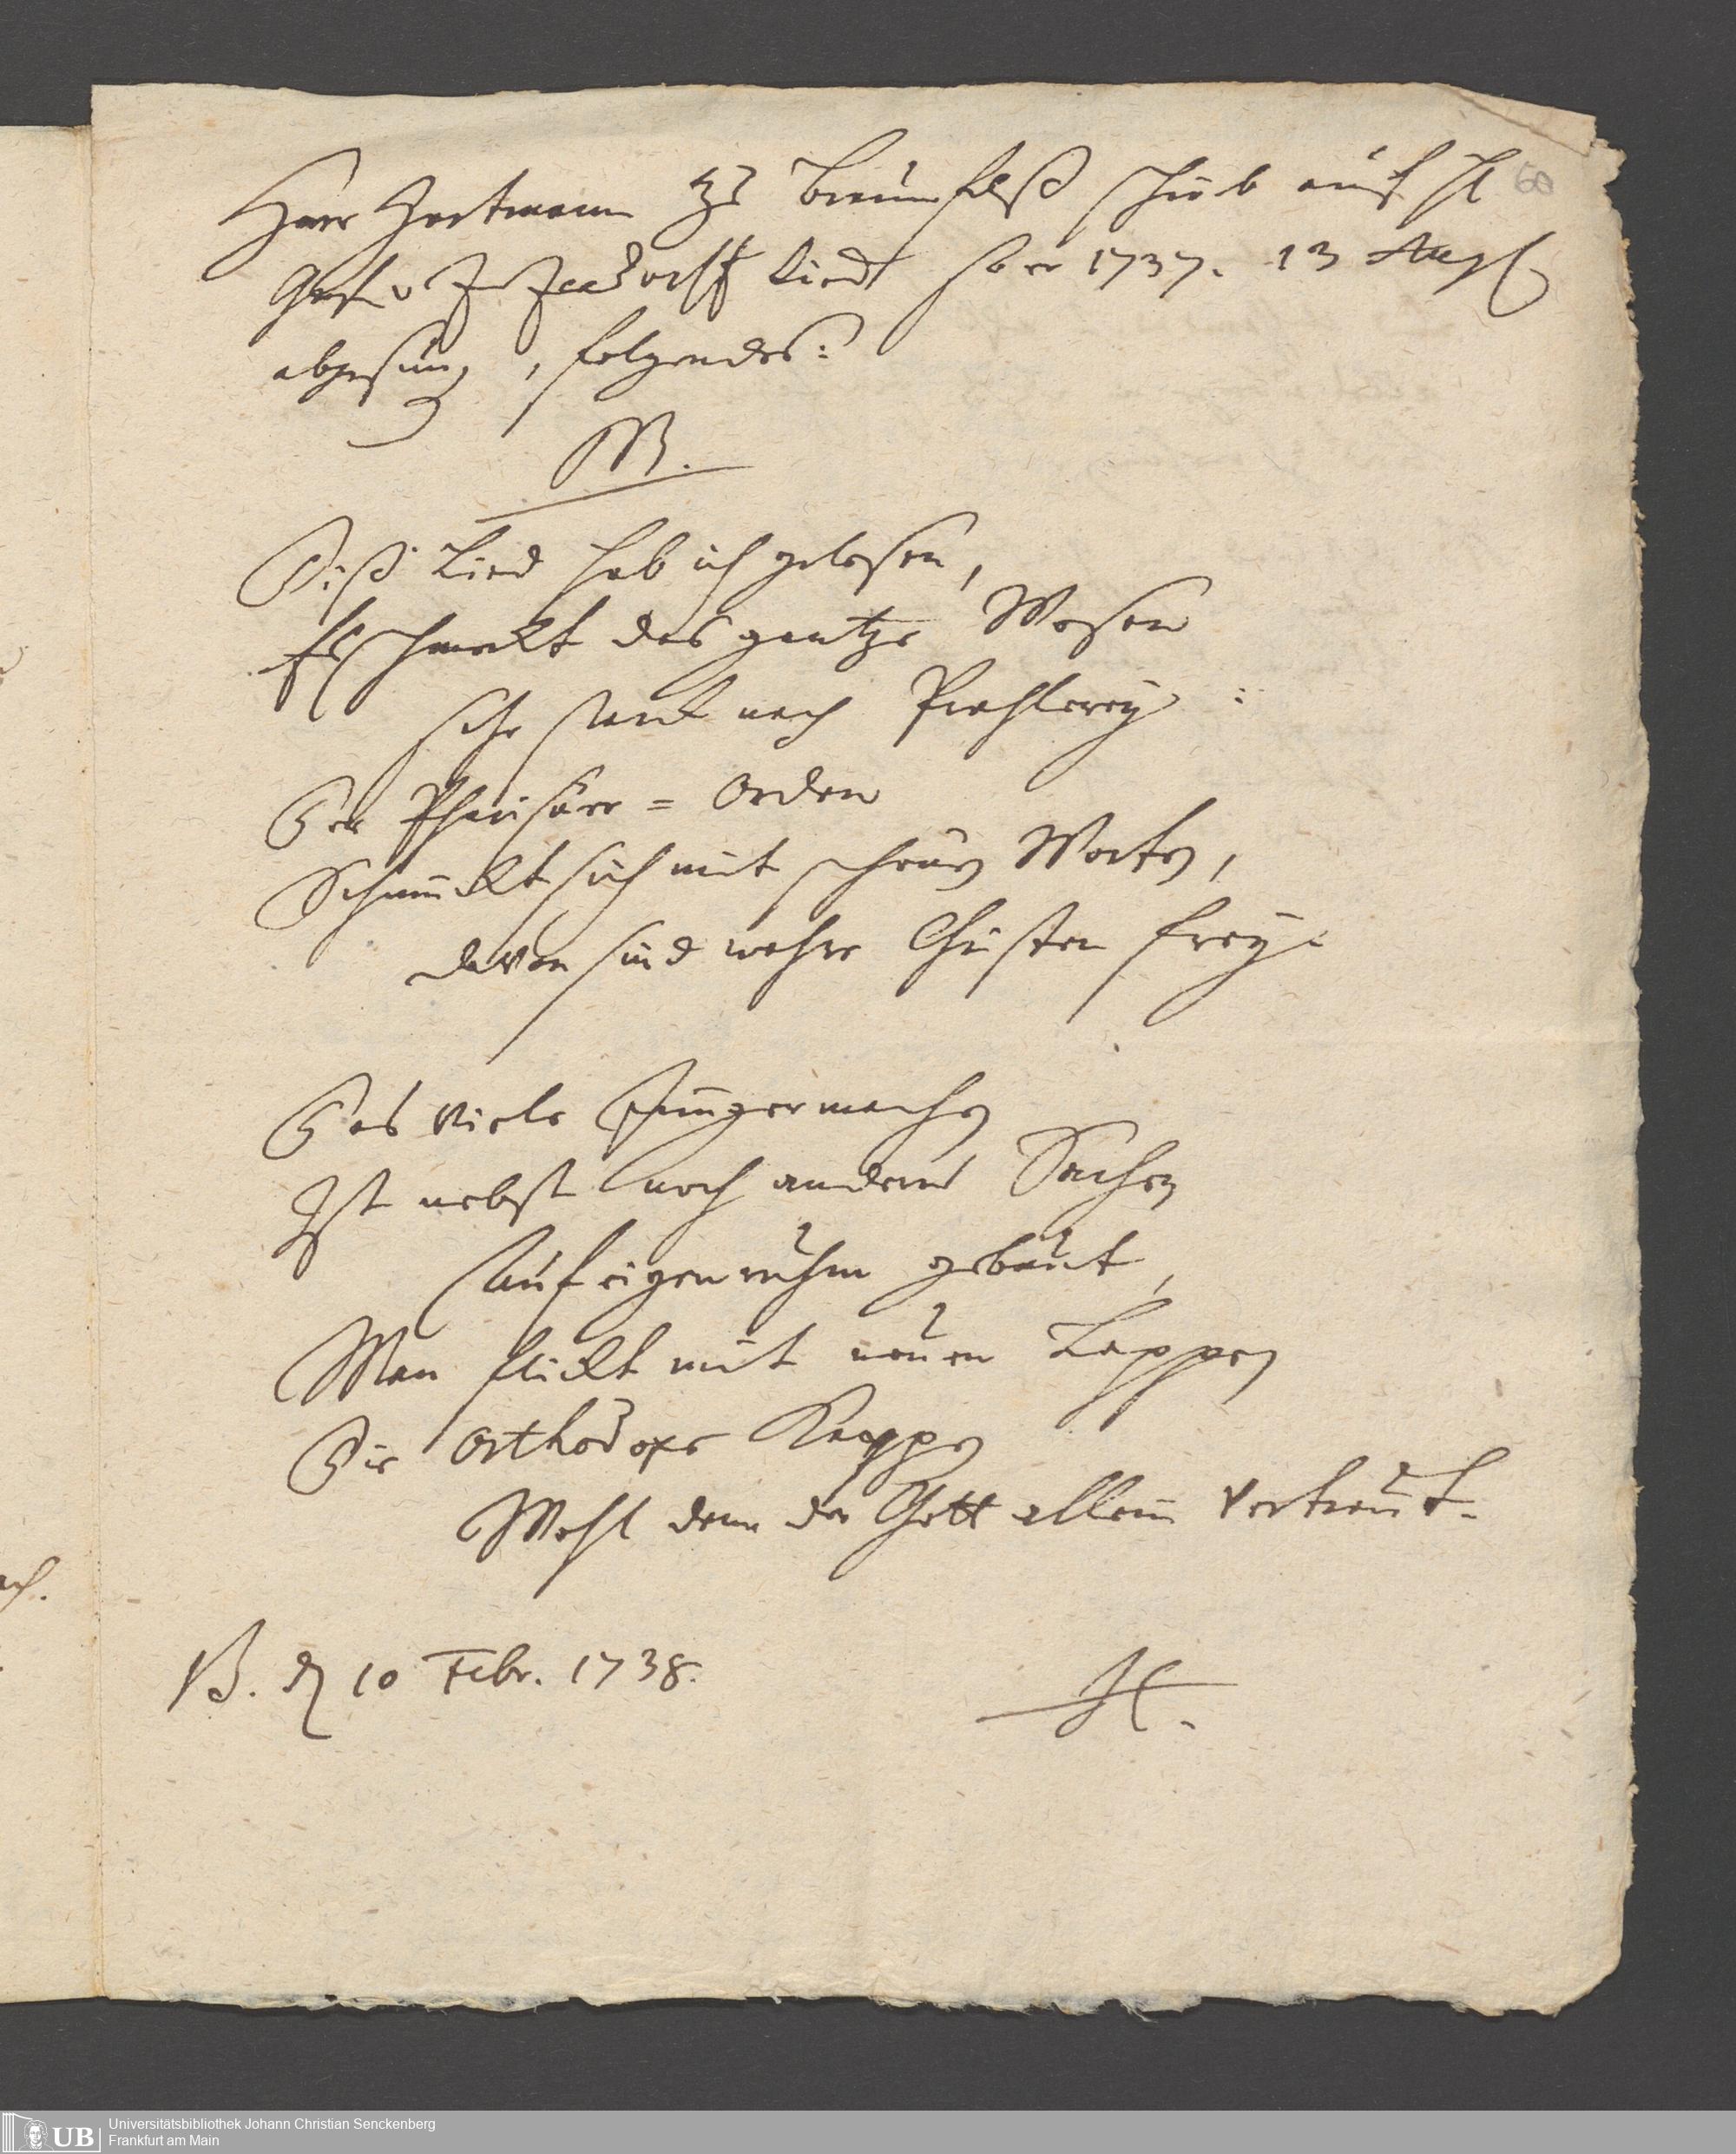 60
Herr Hartmann zu Braunfelß schrieb auf H
Graf v Zinzendorff Lied so er 1737. 13 Aug
abgesung, folgendes:
M.
Diß Lied hab ich gelesen,
Es schmeckt das gantze Wesen
sehr starck nach Prahlerey:
Der Pharisäer=Orden
Schmückt sich mit schönen Worten,
davon sind wahre Christen frey.
Das viele Jüngermachen
Ist nebst noch andern Sachen
Auf eigenruhm gebaut,
Man flickt mit neuen Lappen
Die orthodoxe Kappen
Wohl dem der Gott allein vertraut.
B. d 10 Febr. 1738.
H.
ch.
UB
Universitätsbibliothek Johann Christian Senckenberg
Frankfurt am Main